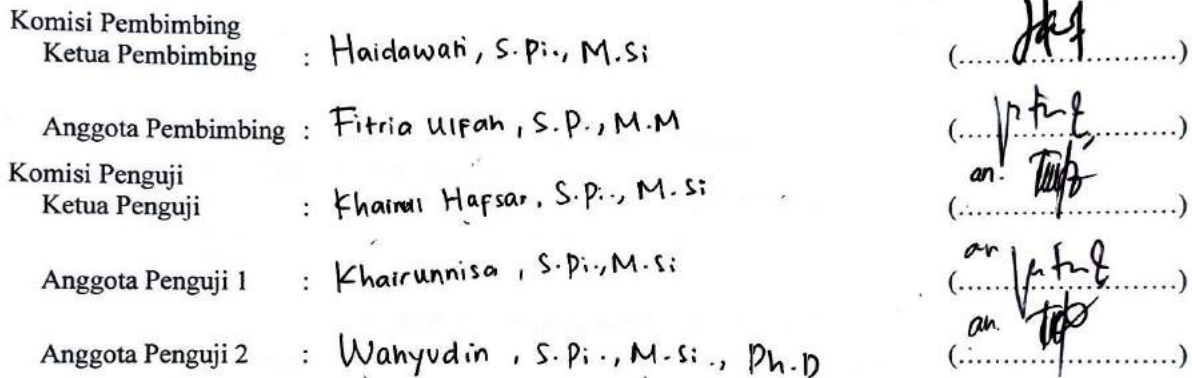 Komisi Pembimbing
Ketua Pembimbing : Haidawati, S.Pi., M.Si (....................)
Anggota Pembimbing : Fitria Ulfah, S.P., M.M (....................)
Komisi Penguji an.
Ketua Penguji : Khairul Hafsar, S.Pi., M.Si (....................)
an
Anggota Penguji 1 : Khairunnisa, S.Pi., M.Si (....................)
an.
Anggota Penguji 2 : Wahyudin, S.Pi., M.Si., Ph.D (....................)